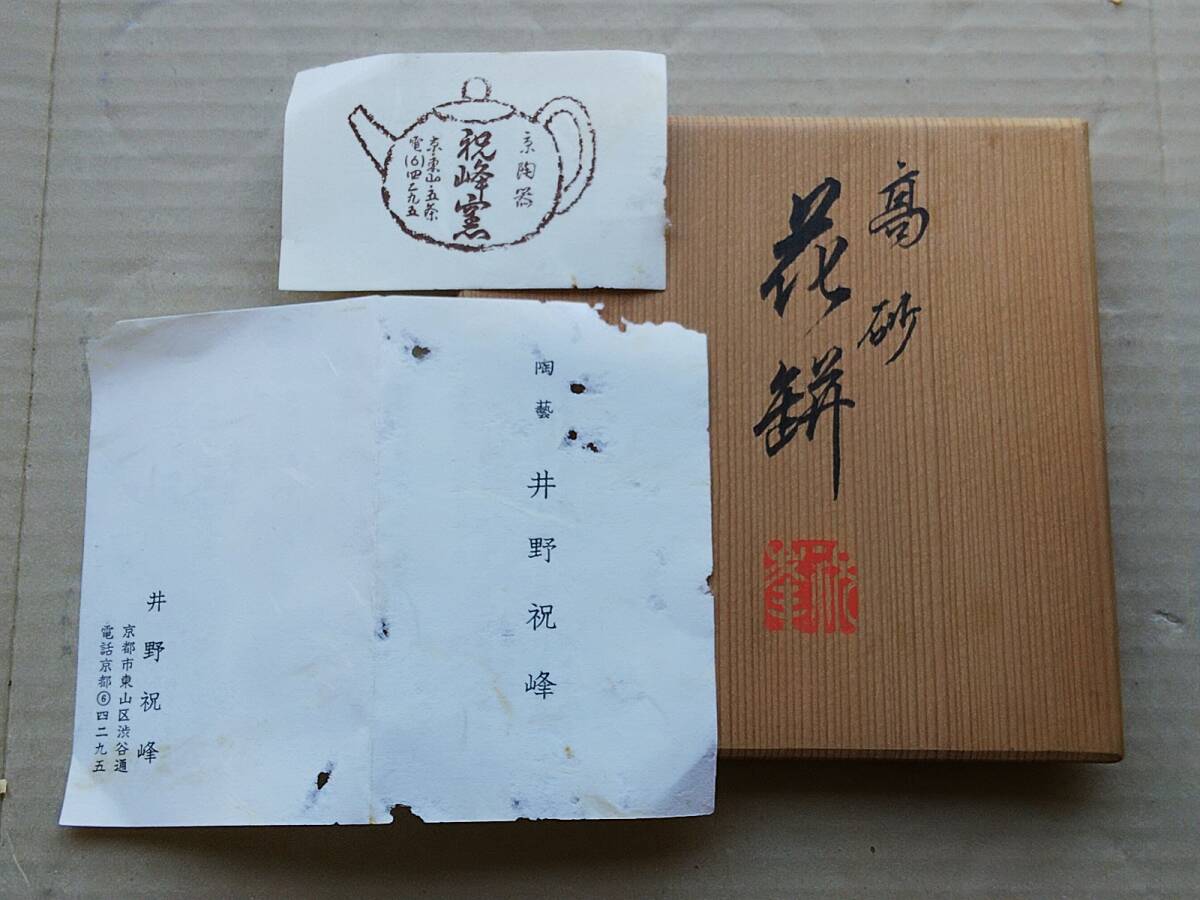 京陶器
祝峰窯
京・東山・五条
電(6)四二九五
高砂
花餅
陶藝 井野祝峰
井野祝峰
京都市東山区渋谷通
電話京都⑥四二九五